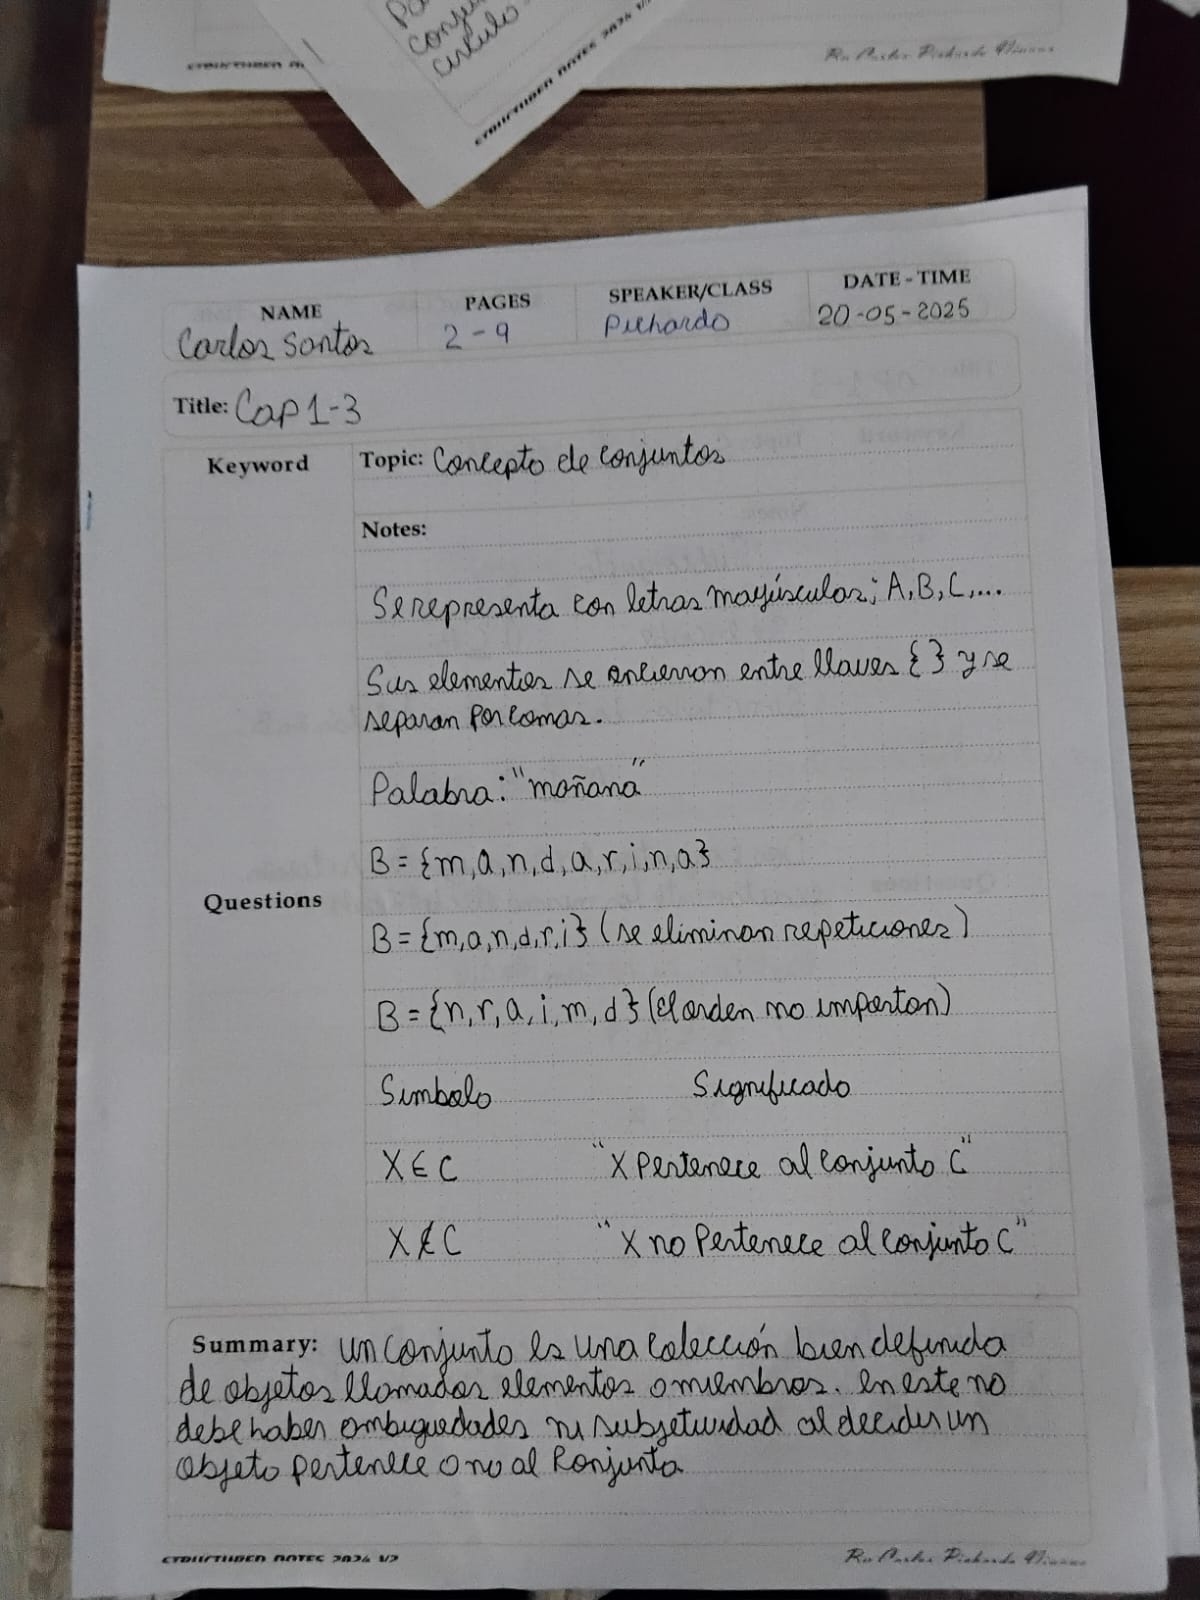 Pa
conju
círculo
STRUCTURED NOTES 2024 V2
STRUCTURED N
NAME
PAGES
SPEAKER/CLASS
DATE - TIME
Carlos Santos
2-9
Pichardo
20-05-2025
Title: Cap 1-3
Keyword
Topic: Concepto de conjuntos
Notes:
Se representa con letras mayúsculas; A, B, C,...
Sus elementos se encierran entre llaves { } y se
separan por comas.
Palabra: "mañana"
B = {m, a, n, d, a, r, i, n, a}
Questions
B = {m, a, n, d, r, i} (se eliminan repeticiones)
B = {n, r, a, i, m, d} (el orden no importan)
Simbolo Significado
X ∈ C "X Pertenece al conjunto C"
X ∉ C "X no Pertenece al conjunto C"
Summary: un conjunto es una colección bien definida
de objetos llamados elementos o miembros. en este no
debe haber ambiguedades ni subjetividad al decidir un
objeto pertenece o no al conjunto
STRUCTURED NOTES 2024 V2